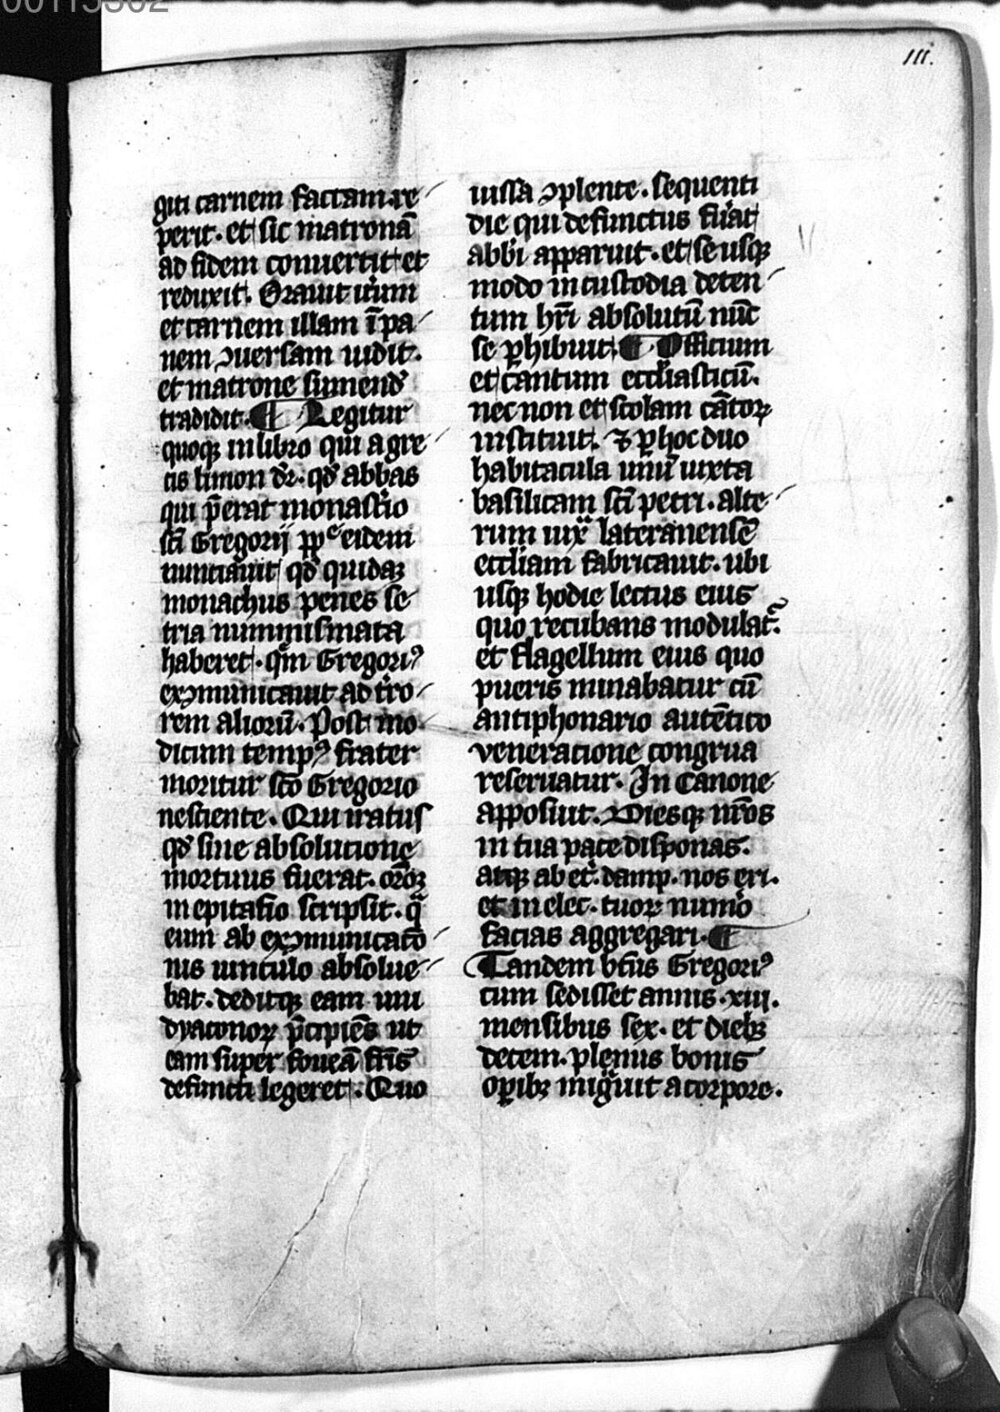 00115302
III.
giti carnem factam re
perit. et sic matronā
ad fidem conuertit et
reduxit. Orauit iťum
et carnem illam ī pa
nem ꝯuersam uidit.
et matrone sumend̛
tradidit. ¶ Legitur
quoqꝫ in libro qui agre
cis limon dr̄. qd̛ abbas
qui p̄erat monast̛io
sc̄i Gregorij pp̄ͤ eidem
nunciauit qd̛ quidaꝫ
monachus penes se
tria numismata
haberet. qm̄ Gregori⁹
exꝯmunicauit ad t̛ro
rem alioꝝ. Post mo
dicum temp⁹ frater
moritur sc̄o Gregorio
nesciente. Qui iratus
qd̛ sine absolucione
mortuus fuerat. or̄oꝫ
in epitafio scripsit. q̄
eum ab exꝯmunicac̄o
nis uinculo absolue
bat. deditqꝫ eam uni
dyaconoꝝ p̄cipiēs ut
eam super foueā fr̄is
defuncti legeret. Quo
iussa ꝯplente. sequenti
die qui defunctus fưat
abb̄i apparuit. et se usqꝫ
modo in custodia deten
tum hr̄i absolutū nūc
se ꝑhibuit. ¶ Officium
et cantum eccl̄iasticū.
nec non et scolam cātoꝝ
instituit. ⁊ ꝑ hoc duo
habitacula unū iuxta
basilicam sc̄i petri. alte
rum iux̄ lateranensē
eccl̄iam fabricauit. ubi
usqꝫ hodie lectus eius
quo recubans modulat̛.
et flagellum eius quo
pueris minabatur cū
antiphonario autētico
veneratione congrua
reseruatur. In Canone
apposuit. Diesqꝫ nr̄os
in tua pace disponas.
atqꝫ ab et̛. damp. nos eri.
et in elec. tuoꝝ num̛o
facias aggregari. ¶
Tandem bt̄us Gregori⁹
cum sedisset annis. xiii.
mensibus sex. et diebꝫ
decem. plenus bonis
oꝑibꝫ migͣuit a corpore.